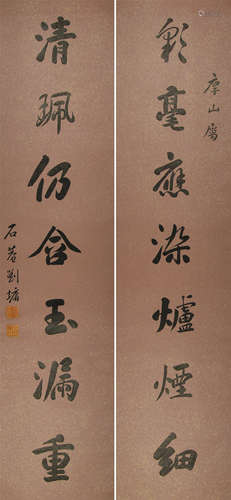 彩毫應染爐煙細
摩山屬
清珮仍含玉漏重
石菴劉墉